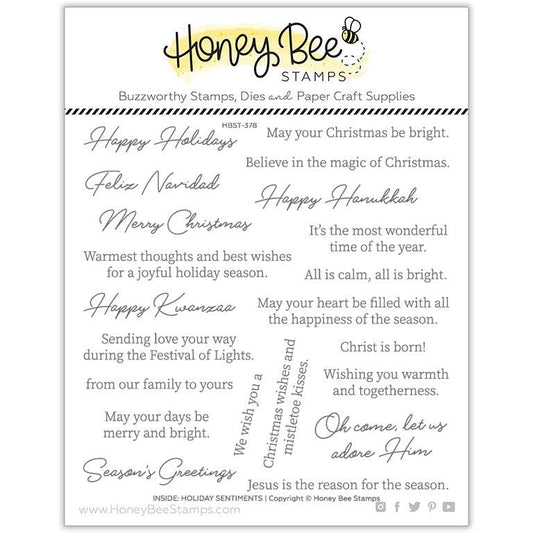 Honey Bee
STAMPS
Buzzworthy Stamps, Dies and Paper Craft Supplies
HBST-378
Happy Holidays
May your Christmas be bright.
Believe in the magic of Christmas.
Feliz Navidad
Happy Hanukkah
Merry Christmas
It's the most wonderful
time of the year.
Warmest thoughts and best wishes
for a joyful holiday season.
All is calm, all is bright.
Happy Kwanzaa
May your heart be filled with all
the happiness of the season.
Sending love your way
during the Festival of Lights.
Christ is born!
from our family to yours
Wishing you warmth
and togetherness.
We wish you a
Christmas wishes and
mistletoe kisses.
May your days be
merry and bright.
Oh come, let us
adore Him
Season's Greetings
Jesus is the reason for the season.
INSIDE: HOLIDAY SENTIMENTS | Copyright © Honey Bee Stamps
www.HoneyBeeStamps.com